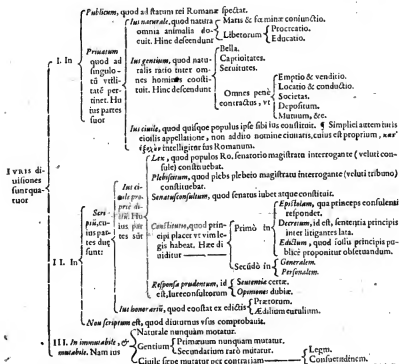 Publicum, quod ad statum rei Romanæ spectat.
I. In
Priuatum
quod ad
singulorũ
vtilitatẽ pertinet. Huius partes
sunt
Ius naturale, quod natura
omnia animalia docuit. Hinc descendunt
Maris & fœminæ coniunctio.
Liberorum
Procreatio.
Educatio.
Ius gentium, quod naturalis ratio inter omnes homines constituit. Hinc descendunt
Bella.
Captiuitates.
Seruitutes.
Omnes penè
contractus, vt
Emptio & venditio.
Locatio & conductio.
Societas.
Depositum.
Mutuum, &c.
Ius ciuile, quod quisque populus ipse sibi ius constituit. ¶ Simplici autem iuris
ciuilis appellatione, non addito nomine ciuitatis, cuius est proprium,
intelligitur ius Romanum.
IVRIS diuisiones
sunt quatuor
II. In
Scriptũ, cuius partes duæ
sunt:
Ius ciuile propriè dictũ: Huius partes sũt
Lex, quod populus Ro. senatorio magistratu interrogante (veluti consule) constituebat.
Plebiscitum, quod plebs plebeio magistratu interrogante (veluti tribuno)
constituebat.
Senatusconsultum, quod senatus iubet atque constituit.
Constitutio, quod principi placet vt vim legis habeat. Hæc diuiditur
Primò in
Epistolam, qua princeps consulenti
respondet.
Decretum, id est, sententia principis
inter litigantes lata.
Edictum, quod iussu principis publicè proponitur obseruandum.
Secũdò in
Generalem.
Personalem.
Responsa prudentum, id est, Iureconsultorum
Sententiæ certæ.
Opiniones dubiæ.
Ius honorariũ, quod constat ex edictis
Prætorum.
Ædilium curulium.
Non scriptum est, quod diuturnus vsus comprobauit.
III. In immutabile, &
mutabile. Nam ius
Naturale nunquam mutatur.
Gentium
Primæuum nunquam mutatur.
Secundarium rarò mutatur.
Ciuile sæpe mutatur per contrariam
Legem.
Consuetudinem.